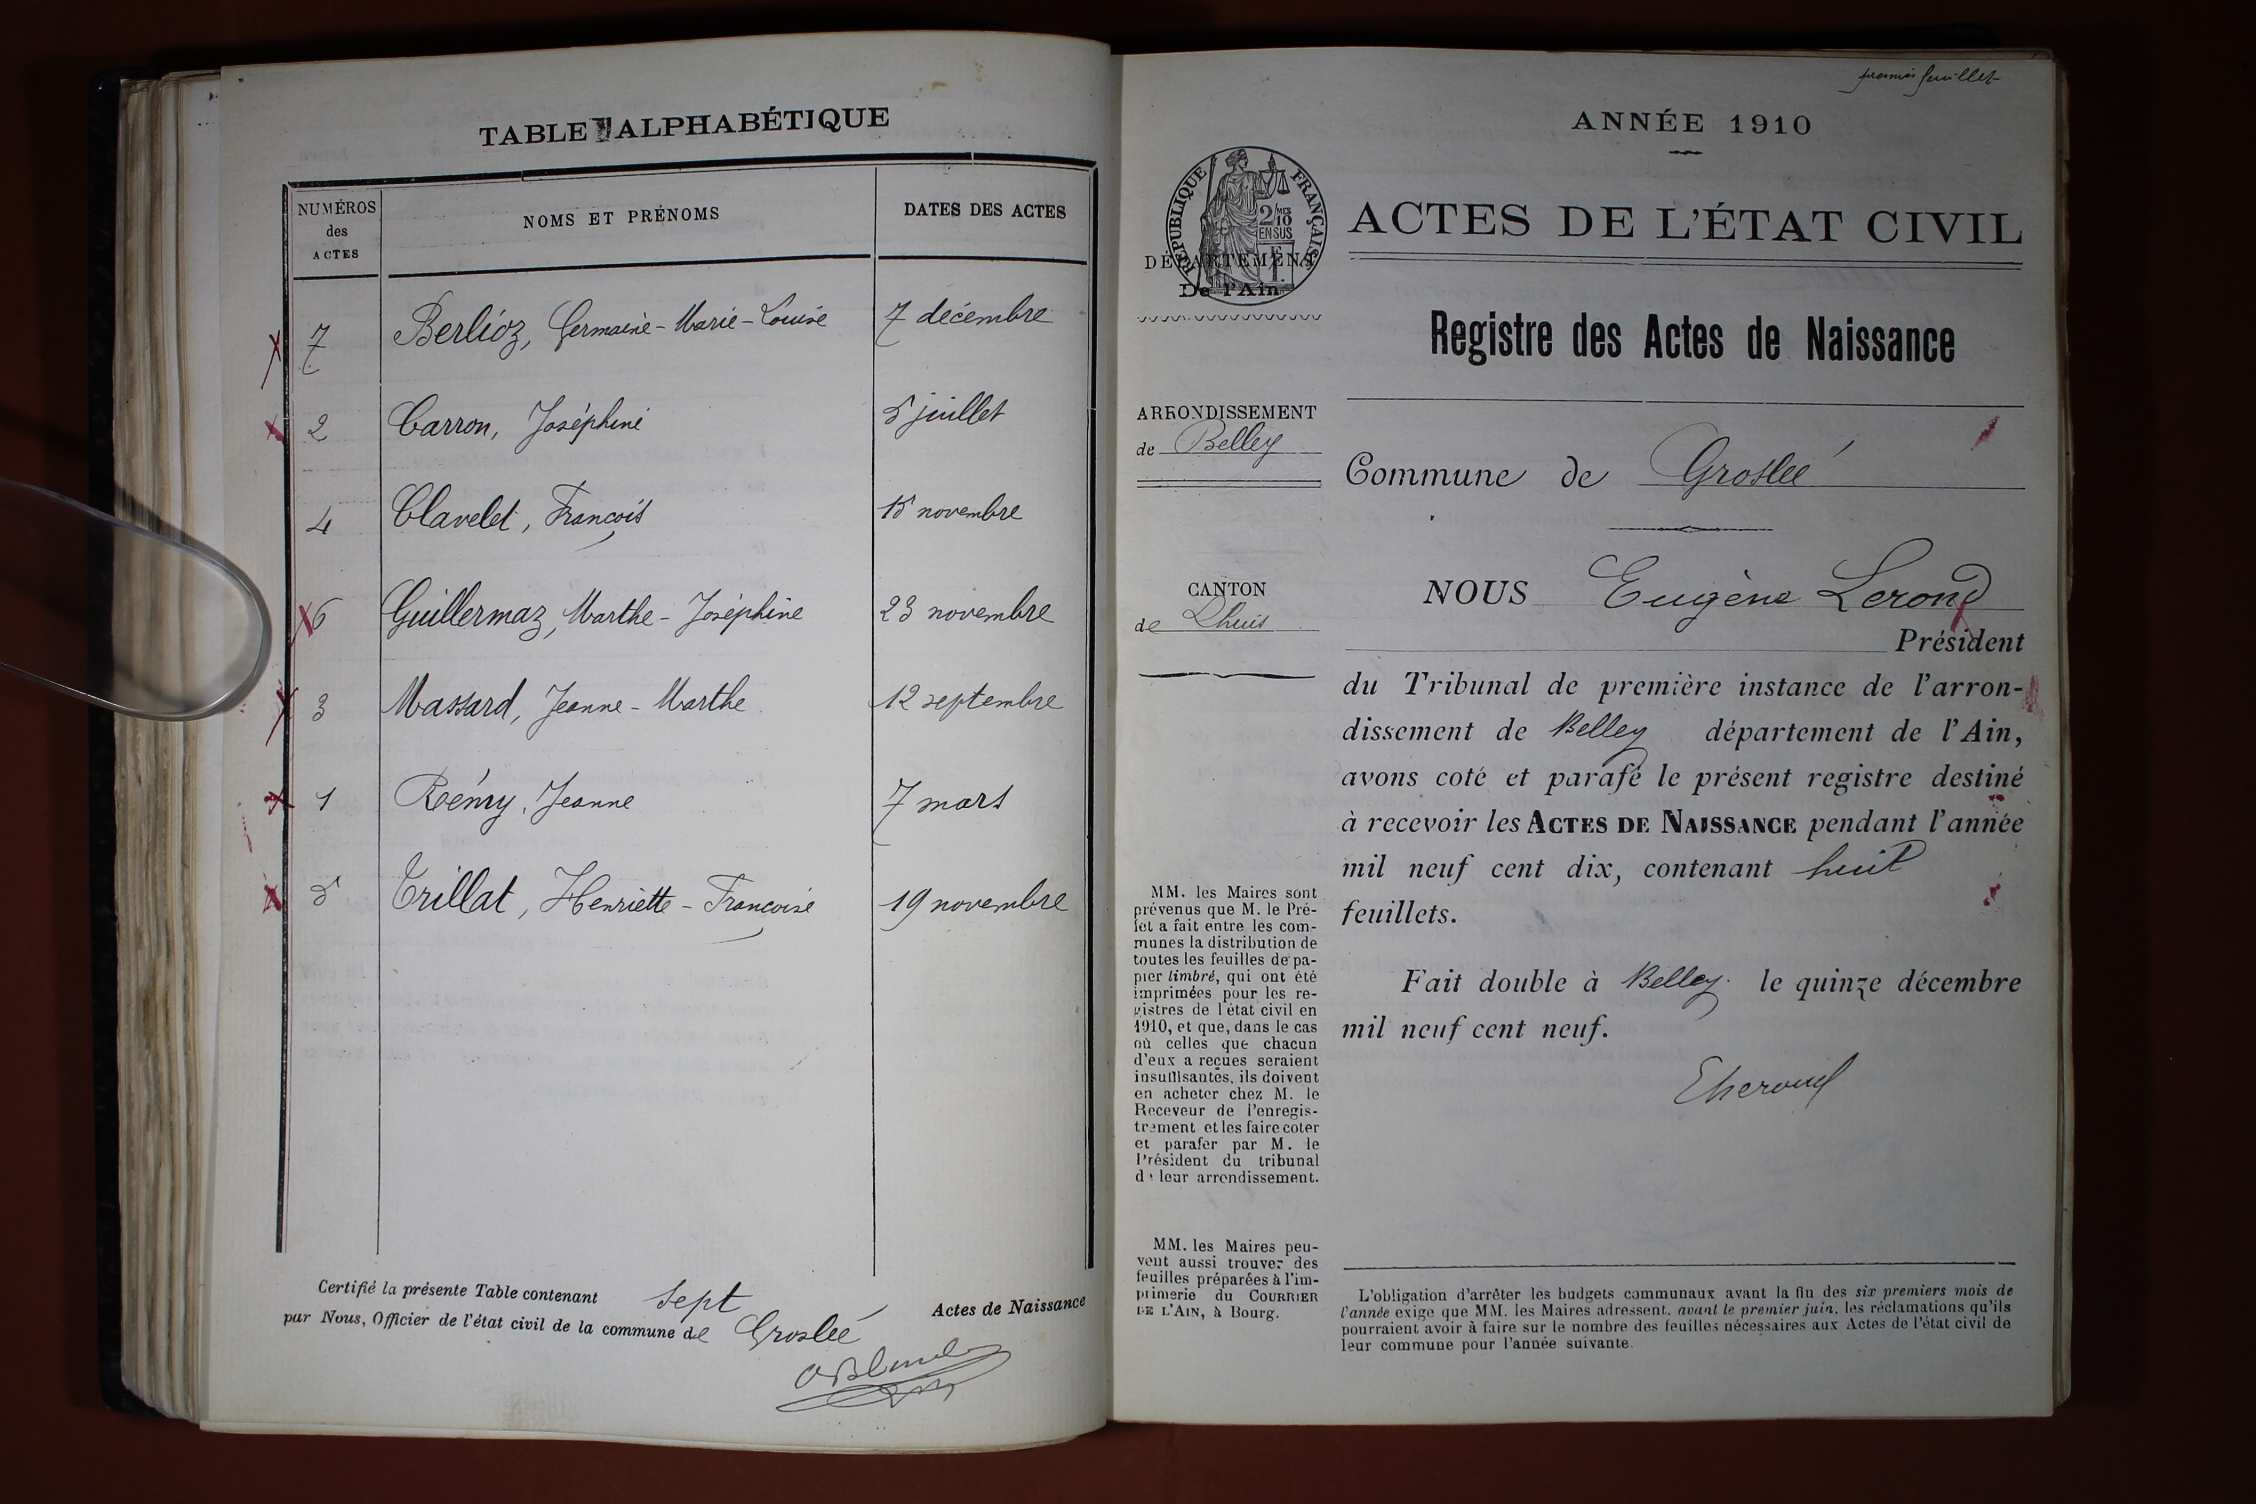 TABLE ALPHABÉTIQUE
NUMÉROS des ACTES
NOMS ET PRÉNOMS
DATES DES ACTES
7 Berlioz, Germaine-Marie-Louise 7 décembre
2 Carron, Joséphine 5 juillet
4 Clavelet, François 15 novembre
6 Guillermaz, Marthe-Joséphine 23 novembre
3 Massard, Jeanne-Marthe 12 septembre
1 Rémy, Jeanne 7 mars
5 Trillat, Henriette-Françoise 19 novembre
Certifié la présente Table contenant sept Actes de Naissance
par Nous, Officier de l'état civil de la commune de Groslée
premier feuillet
ANNÉE 1910
RÉPUBLIQUE FRANÇAISE
2/10 MES
EN SUS
ACTES DE L'ÉTAT CIVIL
DÉPARTEMENT
De l'Ain
Registre des Actes de Naissance
ARRONDISSEMENT
de Belley
Commune de Groslée
CANTON
de Lhuis
NOUS Eugène Lerond
Président
du Tribunal de première instance de l'arron-
dissement de Belley département de l'Ain,
avons coté et parafé le présent registre destiné
à recevoir les ACTES DE NAISSANCE pendant l'année
mil neuf cent dix, contenant huit
feuillets.
Fait double à Belley. le quinze décembre
mil neuf cent neuf.
MM. les Maires sont
prévenus que M. le Pré-
fet a fait entre les com-
munes la distribution de
toutes les feuilles de pa-
pier limbré, qui ont été
imprimées pour les re-
gistres de l'état civil en
1910, et que, dans le cas
où celles que chacun
d'eux a reçues seraient
insuffisantes, ils doivent
en acheter chez M. le
Receveur de l'enregis-
trement et les faire coter
et parafer par M. le
Président du tribunal
de leur arrondissement.
MM. les Maires peu-
vent aussi trouver des
feuilles préparées à l'im-
primerie du COURRIER
DE L'AIN, à Bourg.
L'obligation d'arrêter les budgets communaux avant la fin des six premiers mois de
l'année exige que MM. les Maires adressent, avant le premier juin, les réclamations qu'ils
pourraient avoir à faire sur le nombre des feuilles nécessaires aux Actes de l'état civil de
leur commune pour l'année suivante.